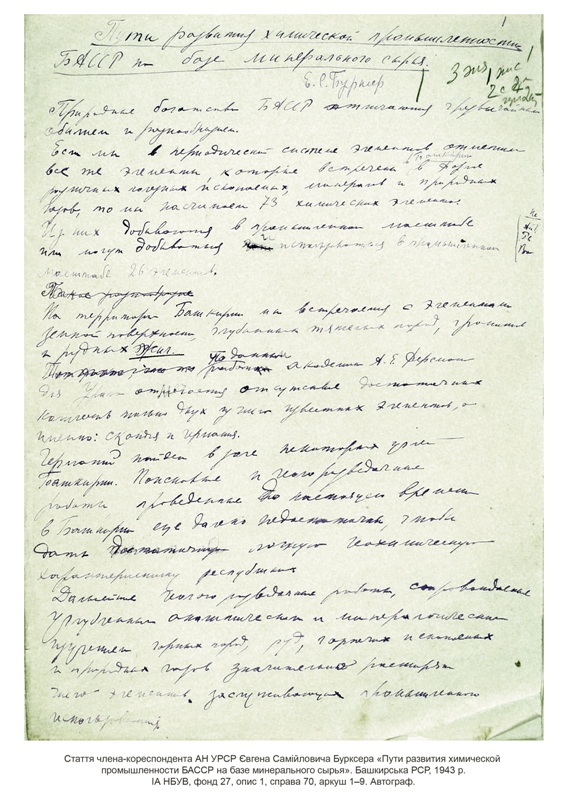 Пути развития химической промышленности
БАССР на базе минерального сырья.
Е. С. Бурксер
3 экз,
Природные богатства БАССР отличаются чрезвычайным
обилием и разнообразием.
Если мы в периодической системе элементов отметим
все те элементы, которые встречены в Башкирии в
горных, минералов и природных
то мы насчитаем 73 химических элемента
Из них добываются в промышленном масштабе
или могут добываться в промышленном
масштабе 26 элементов.
На территории Башкирии мы встречаемся с элементами
земной поверхности, глубинных пород, гранитов
и рудных жил.
По данным академика А. Е. Ферсмана
для Урала отмечается отсутствие достаточных
количеств только двух элементов, а
именно: скандия и германия.
Германий найден в золе некоторых углей
Башкирии. Поисковые и геологоразведочные
работы проведенные до настоящего времени
в Башкирии еще далеко недостаточны, чтобы
дать геохимическую
характеристику республики
Дальнейшие геологоразведочные работы, сопровождаемые
углубленным и минералогическим
изучением горных пород, руд, горючих ископаемых
и природных газов значительно расширят
число элементов, заслуживающих промышленного
использования
Стаття члена-кореспондента АН УРСР Євгена Самійловича Бурксера «Пути развития химической
промышленности БАССР на базе минерального сырья». Башкирська РСР, 1943 р.
ІА НБУВ, фонд 27, опис 1, справа 70, аркуш 1–9. Автограф.